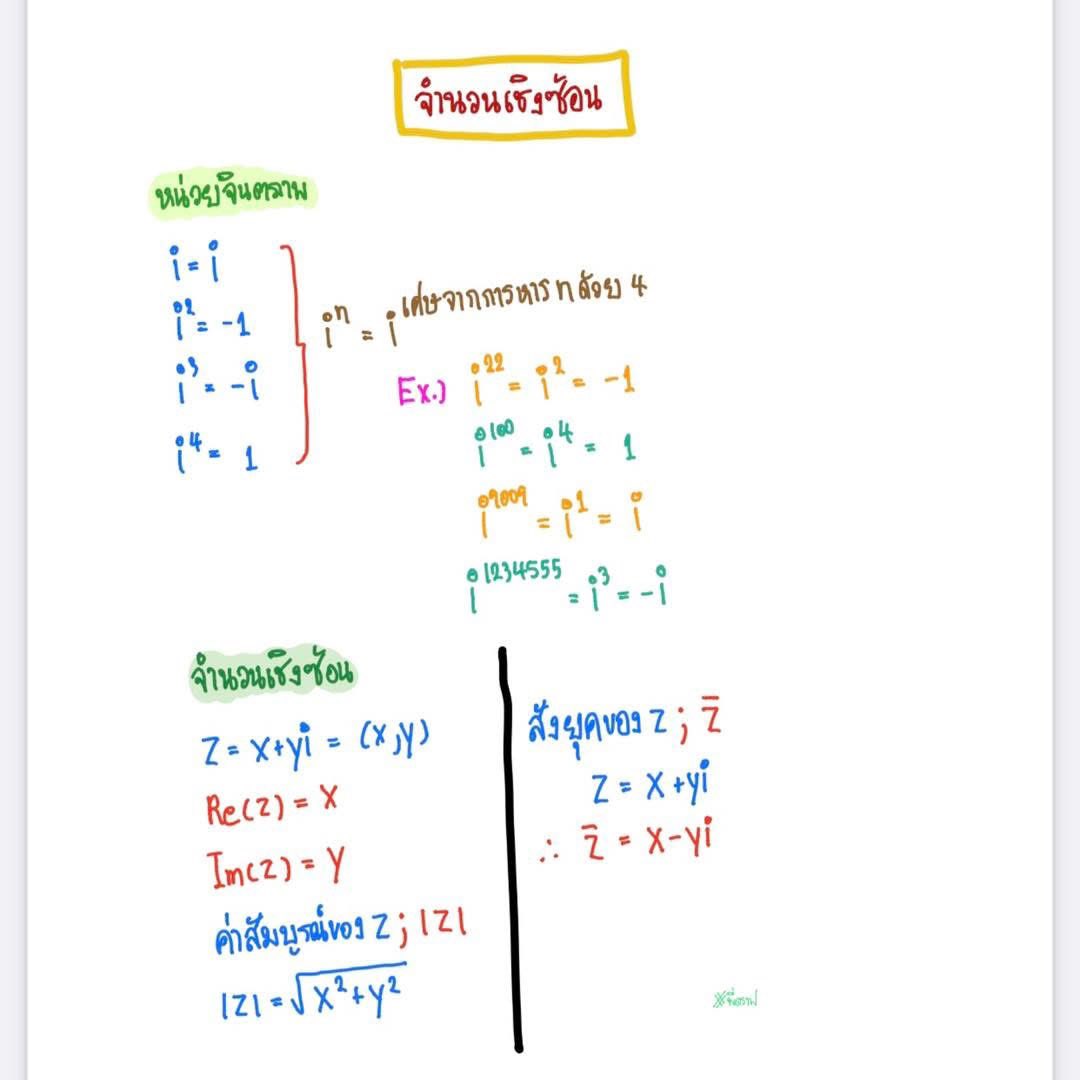 จำนวนเชิงซ้อน
หน่วยจินตภาพ
i = i
i² = -1
i³ = -i
i⁴ = 1
iⁿ = i เศษจากการหาร n ด้วย 4
Ex.) i²² = i² = -1
i¹⁰⁰ = i⁴ = 1
i⁹⁰⁰⁹ = i¹ = i
i¹²³⁴⁵⁵⁵ = i³ = -i
จำนวนเชิงซ้อน
Z = x+yi = (x,y)
Re(z) = x
Im(z) = y
ค่าสัมบูรณ์ของ Z ; |Z|
|Z| = √x²+y²
สังยุคของ Z ; z̄
Z = x+yi
∴ z̄ = x-yi